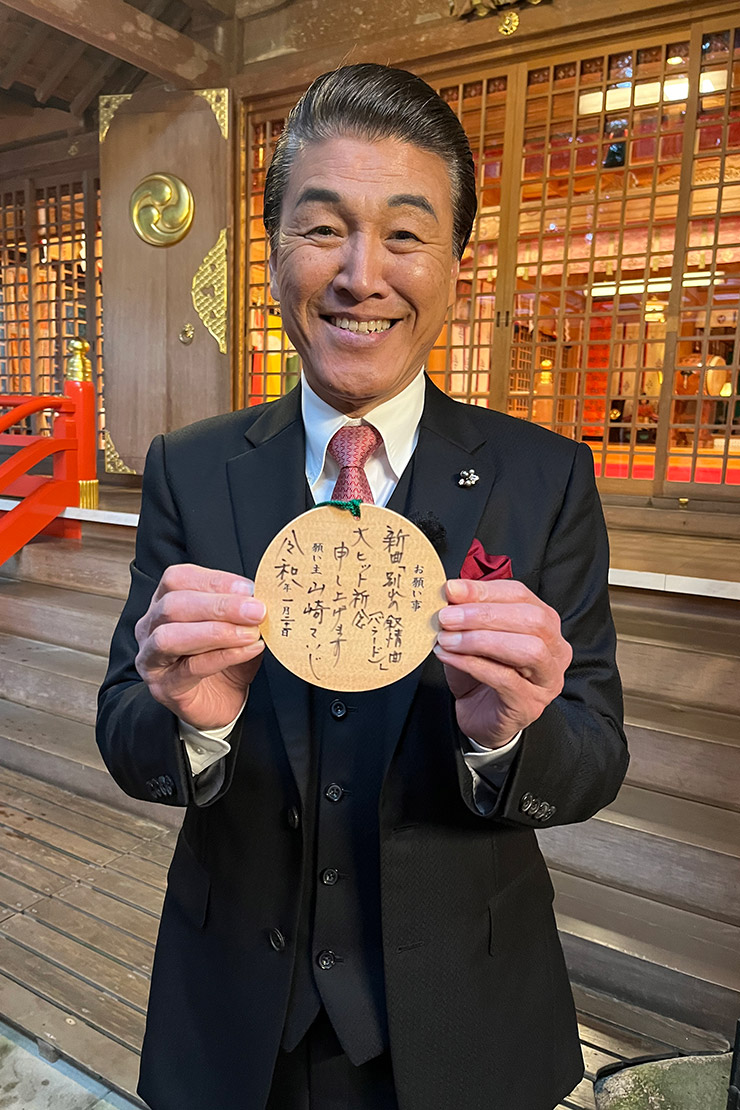 お願い事
新曲「別れの叙情曲
(バラード)」
大ヒット祈念
申し上げます
願い主 山崎ていじ
令和 年一月二十日